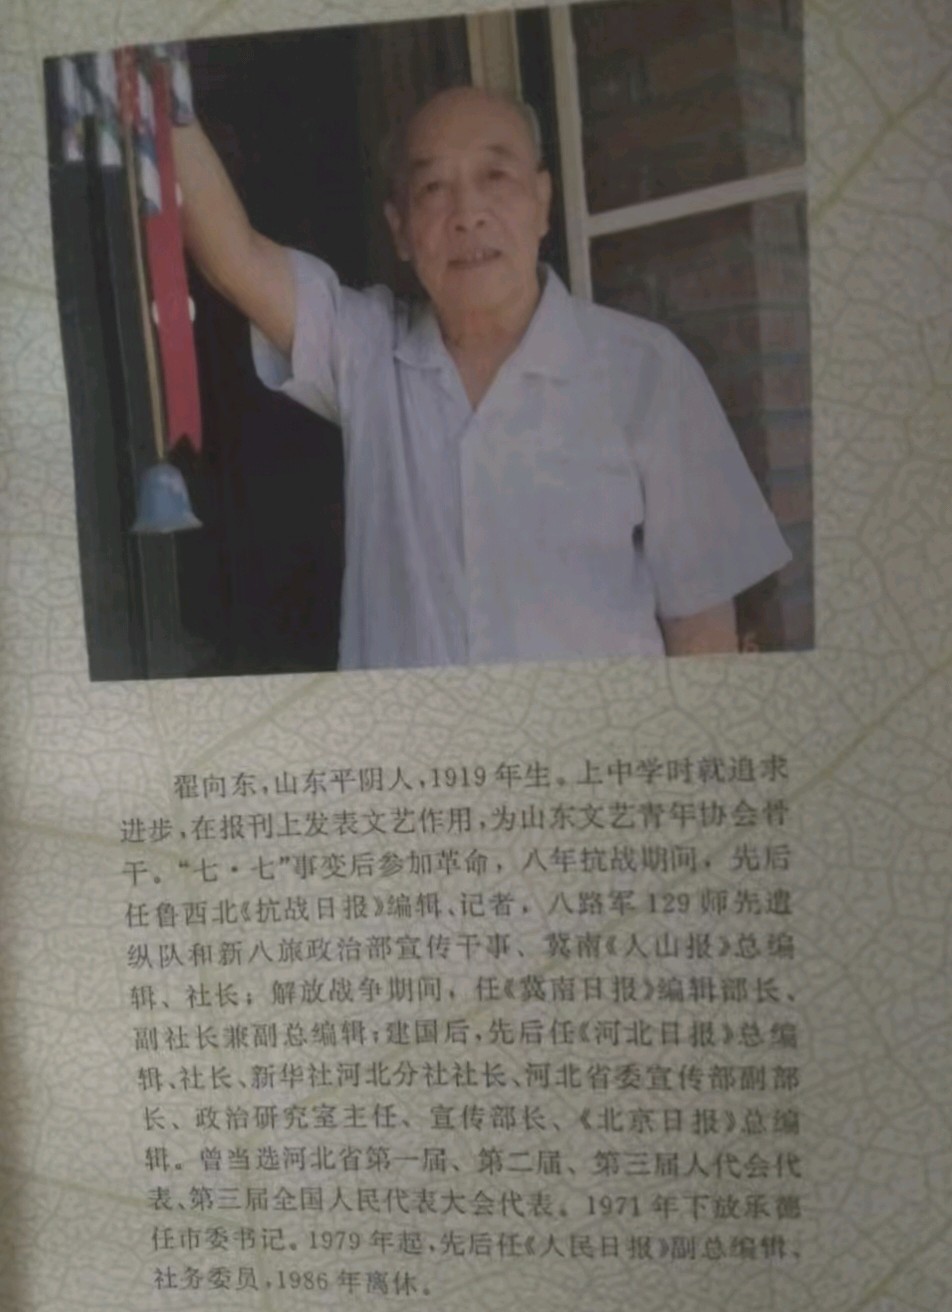 翟向东,山东平阴人,1919年生。上中学时就追求
进步,在报刊上发表文艺作用,为山东文艺青年协会骨
干。“七·七”事变后参加革命，八年抗战期间，先后
任鲁西北《抗战日报》编辑、记者，八路军129师先遣
纵队和新八旅政治部宣传干事、冀南《人山报》总编
辑、社长；解放战争期间，任《冀南日报》编辑部长、
副社长兼副总编辑;建国后,先后任《河北日报》总编
辑、社长、新华社河北分社社长、河北省委宣传部副部
长、政治研究室主任、宣传部长、《北京日报》总编
辑。曾当选河北省第一届、第二届、第三届人代会代
表、第三届全国人民代表大会代表。1971年下放承德
任市委书记。1979年起,先后任《人民日报》副总编辑、
社务委员,1986年离休。